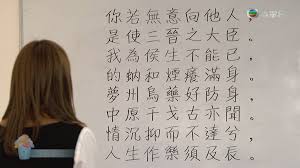 你若無意向他人，
是使三晉之大臣。
我為侯生不能已，
的蚋和煙癢滿身。
夢州烏藥好防身，
中原干戈古亦聞。
情沉抑而不達兮，
人生作樂須及辰。